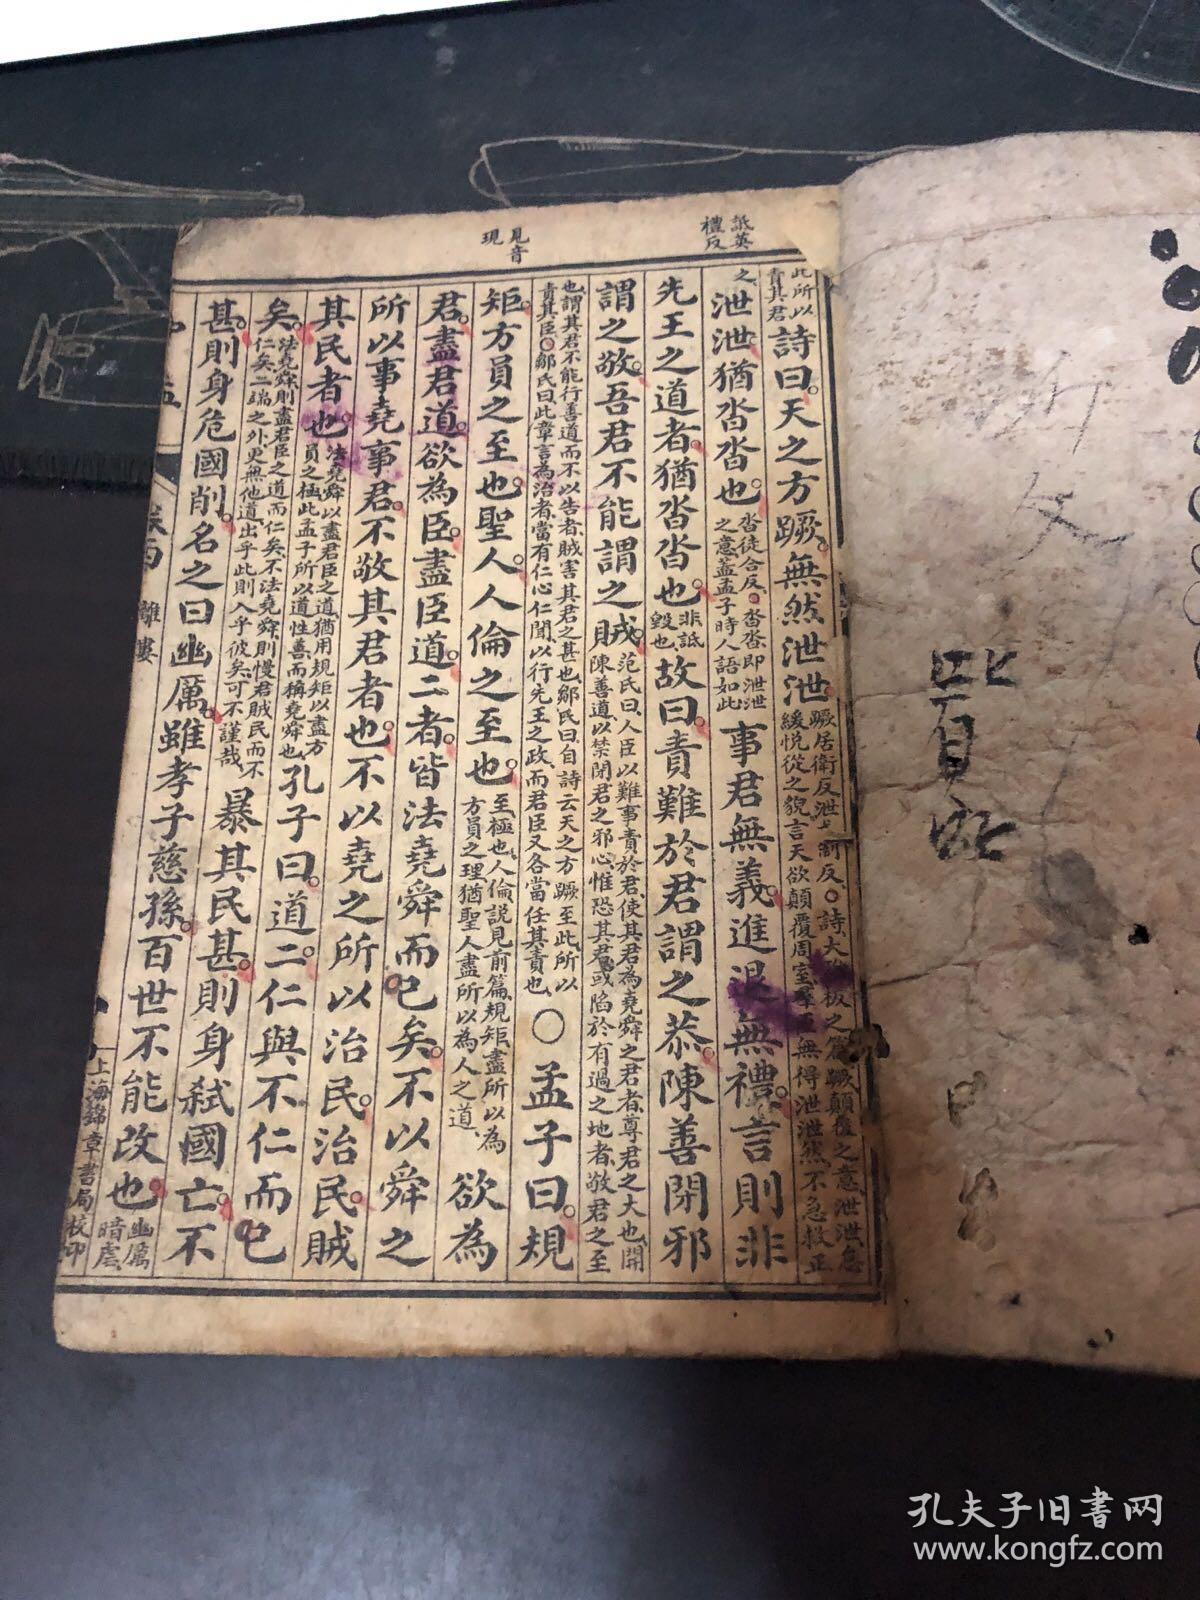 詆英
禮反
見音
現
此所以
責其君
詩曰天之方蹶無然泄泄
蹶居衛反泄
反〇詩大
板之篇蹶顛覆之意泄泄怠
緩悅從之貌言天欲顛覆周室羣
無得泄泄然不急救正
之
泄泄猶沓沓也
沓徒合反〇沓沓即泄泄
之意蓋孟子時人語如此
事君無義進退無禮言則非
先王之道者猶沓沓也
非詆
毀也
故曰責難於君謂之恭陳善閉邪
謂之敬吾君不能謂之賊
范氏曰人臣以難事責於君使其君為堯舜之君者尊君之大也開
陳善道以禁閉君之邪心惟恐其君或陷於有過之地者敬君之至
也謂其君不能行善道而不以告者賊害其君之甚也鄒氏曰自詩云天之方蹶至此所以
責其臣〇鄒氏曰此章言為治者當有仁心仁聞以行先王之政而君臣又各當任其責也
〇孟子曰規
矩方員之至也聖人人倫之至也
至極也人倫說見前篇規矩盡所以為
方員之理猶聖人盡所以為人之道
欲為
君盡君道欲為臣盡臣道二者皆法堯舜而已矣不以舜之
所以事堯事君不敬其君者也不以堯之所以治民治民賊
其民者也
法堯舜以盡君臣之道猶用規矩以盡方
員之極此孟子所以道性善而稱堯舜也
孔子曰道二仁與不仁而已
矣
法堯舜則盡君臣之道而仁矣不法堯舜則慢君賊民而不
仁矣二端之外更無他道出乎此則入乎彼矣可不謹哉
暴其民甚則身弒國亡不
甚則身危國削名之曰幽厲雖孝子慈孫百世不能改也
幽厲
暗虐
離婁
上海錦章書局校印
孔夫子旧书网
www.kongfz.com